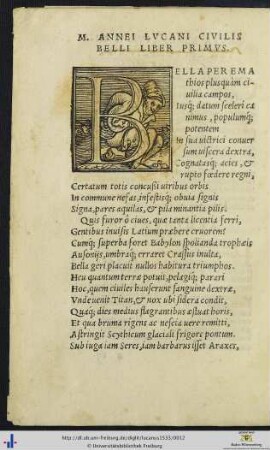 M. ANNEI LVCANI CIVILIS
BELLI LIBER PRIMVS.
BELLA PER EMA
thios plusquàm ci
uilia campos,
Iusq; datum sceleri ca
nimus, populumq;
potentem
In sua uictrici conuer
sum uiscera dextra,
Cognatasq; acies, &
rupto fœdere regni,
Certatum totis concussi uiribus orbis
In commune nefas, infestisq; obuia signis
Signa, pares aquilas, & pila minantia pilis.
Quis furor ô ciues, quæ tanta licentia ferri,
Gentibus inuisis Latium præbere cruorem?
Cumq; superba foret Babylon spolianda trophæis
Ausonijs, umbraq; erraret Crassus inulta,
Bella geri placuit nullos habitura triumphos.
Heu quantum terræ potuit, pelagiq; parari
Hoc, quem ciuiles hauserunt sanguine dextræ,
Vnde uenit Titan, & nox ubi sidera condit,
Quaq; dies medius flagrantibus æstuat horis,
Et qua bruma rigens ac nescia uere remitti,
Astringit Scythicum glaciali frigore pontum.
Sub iuga iam Seres, iam barbarus isset Araxes,
http://dl.ub.uni-freiburg.de/diglit/lucanus1535/0012
© Universitätsbibliothek Freiburg
Baden-Württemberg